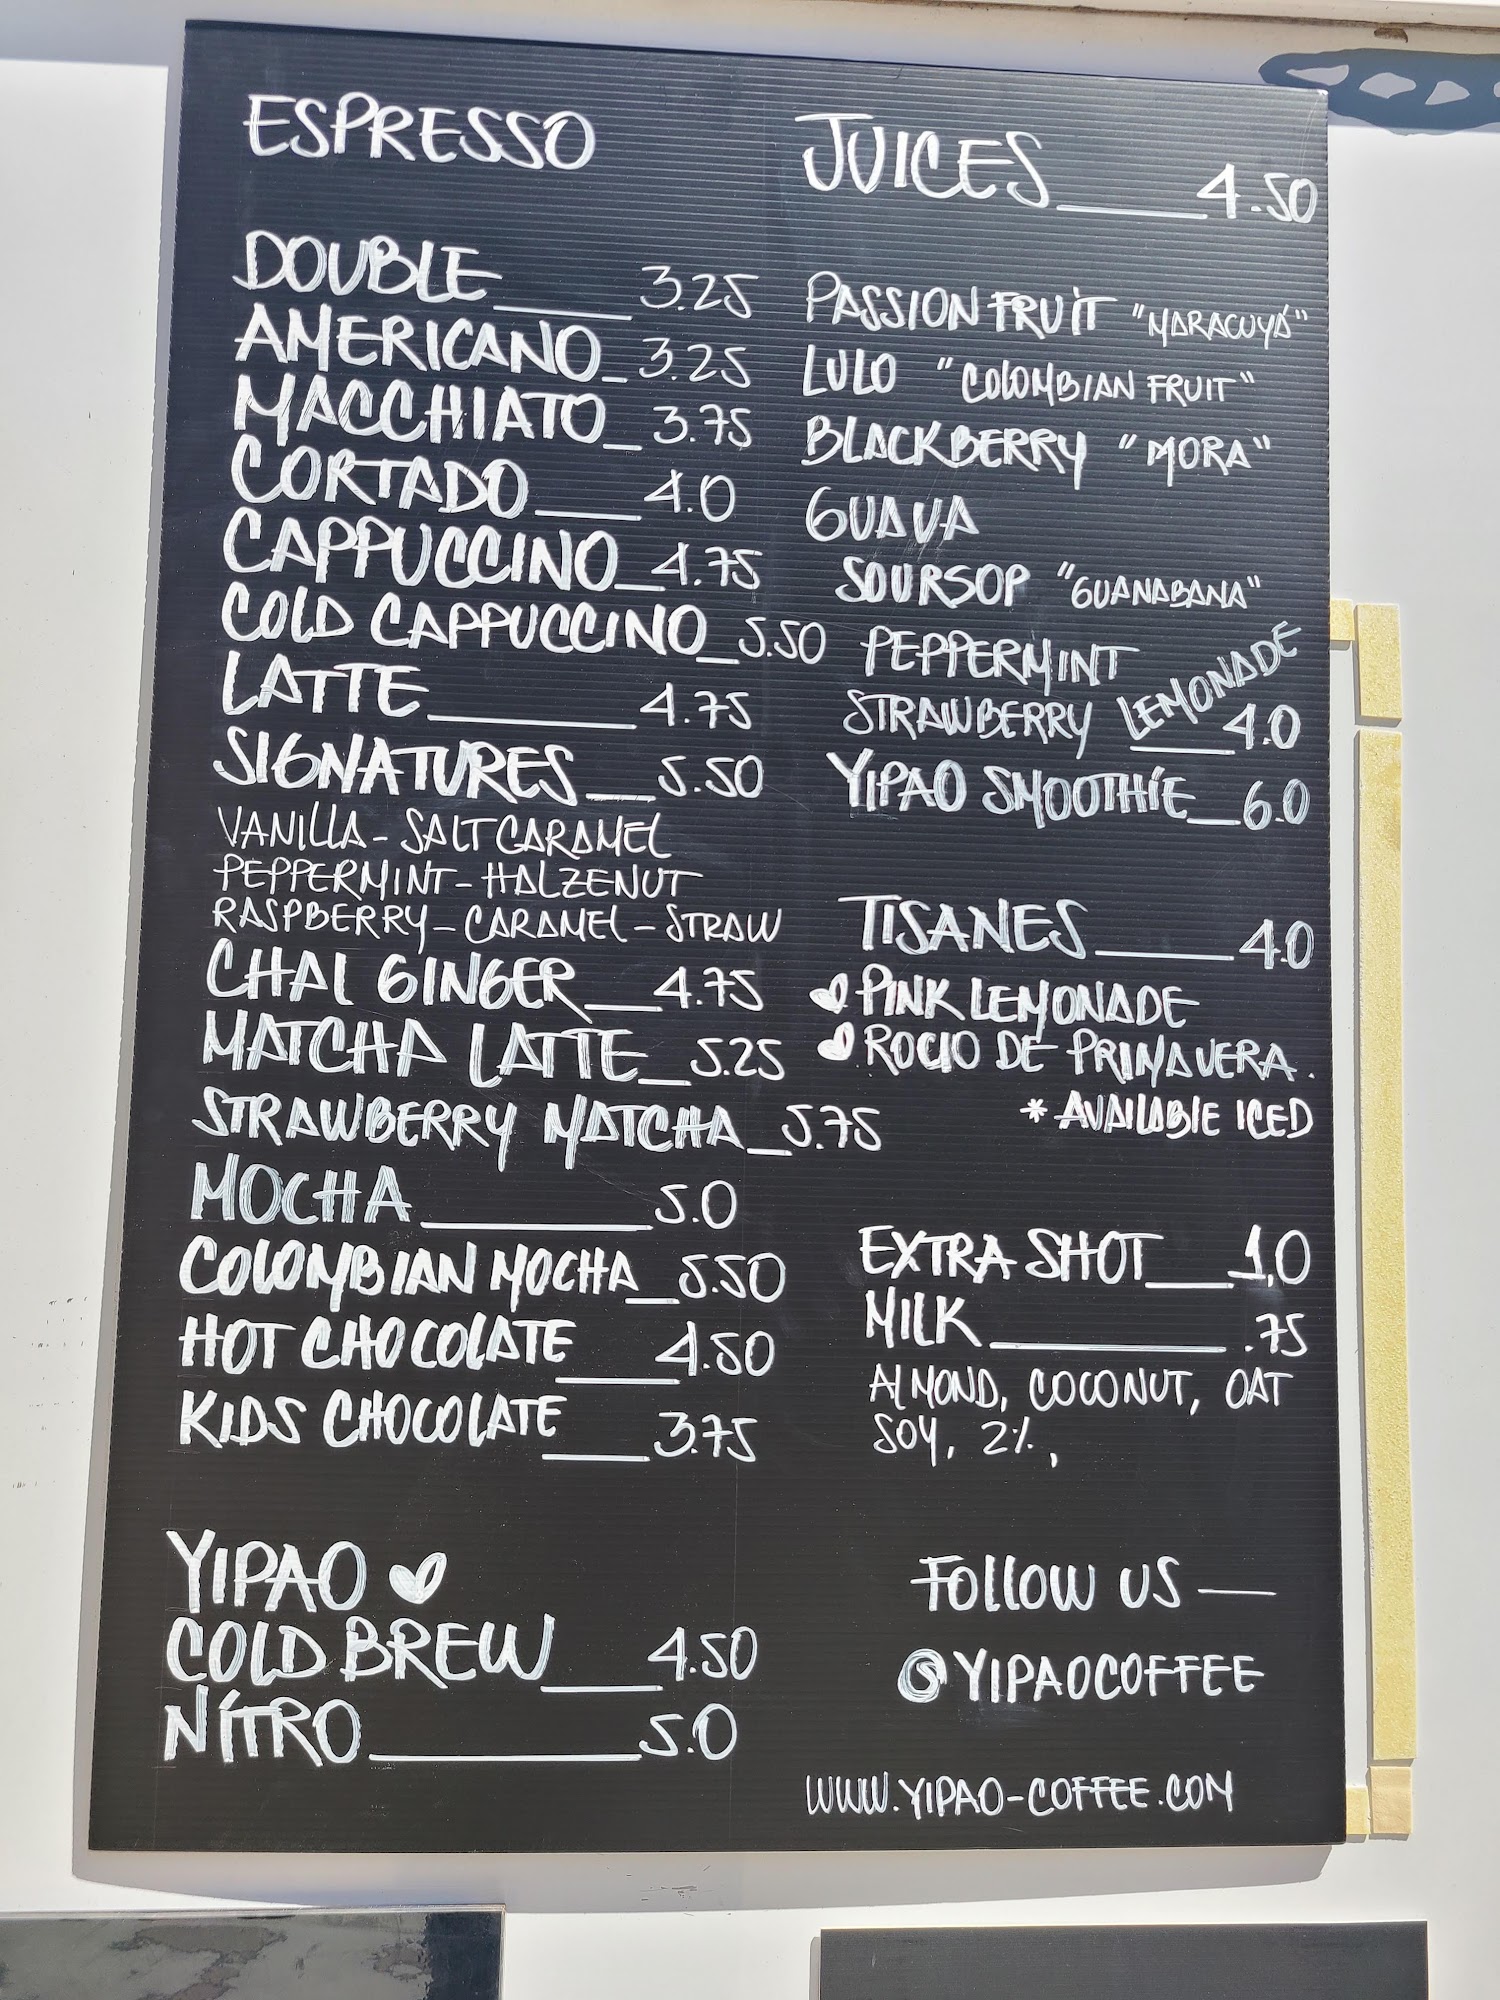 ESPRESSO
DOUBLE 3.25
AMERICANO 3.25
MACCHIATO 3.75
CORTADO 4.0
CAPPUCCINO 4.75
COLD CAPPUCCINO 5.50
LATTE 4.75
SIGNATURES 5.50
VANILLA - SALT CARAMEL
PEPPERMINT - HALZENUT
RASPBERRY - CARAMEL - STRAW
CHAI GINGER 4.75
MATCHA LATTE 5.25
STRAWBERRY MATCHA 5.75
MOCHA 5.0
COLOMBIAN MOCHA 5.50
HOT CHOCOLATE 4.50
KIDS CHOCOLATE 3.75
YIPAO
COLD BREW 4.50
NÍTRO 5.0
JUICES 4.50
PASSION FRUIT "MARACUYÁ"
LULO "COLOMBIAN FRUIT"
BLACKBERRY "MORA"
GUAVA
SOURSOP "GUANABANA"
PEPPERMINT
STRAWBERRY LEMONADE 4.0
YIPAO SMOOTHÍE 6.0
TISANES 4.0
PINK LEMONADE
ROCIO DE PRIMAVERA.
* AVAILABLE ICED
EXTRA SHOT 1,0
MILK .75
ALMOND, COCONUT, OAT
SOY, 2%,
FOLLOW US
@YIPAOCOFFEE
WWW.YIPAO-COFFEE.COM